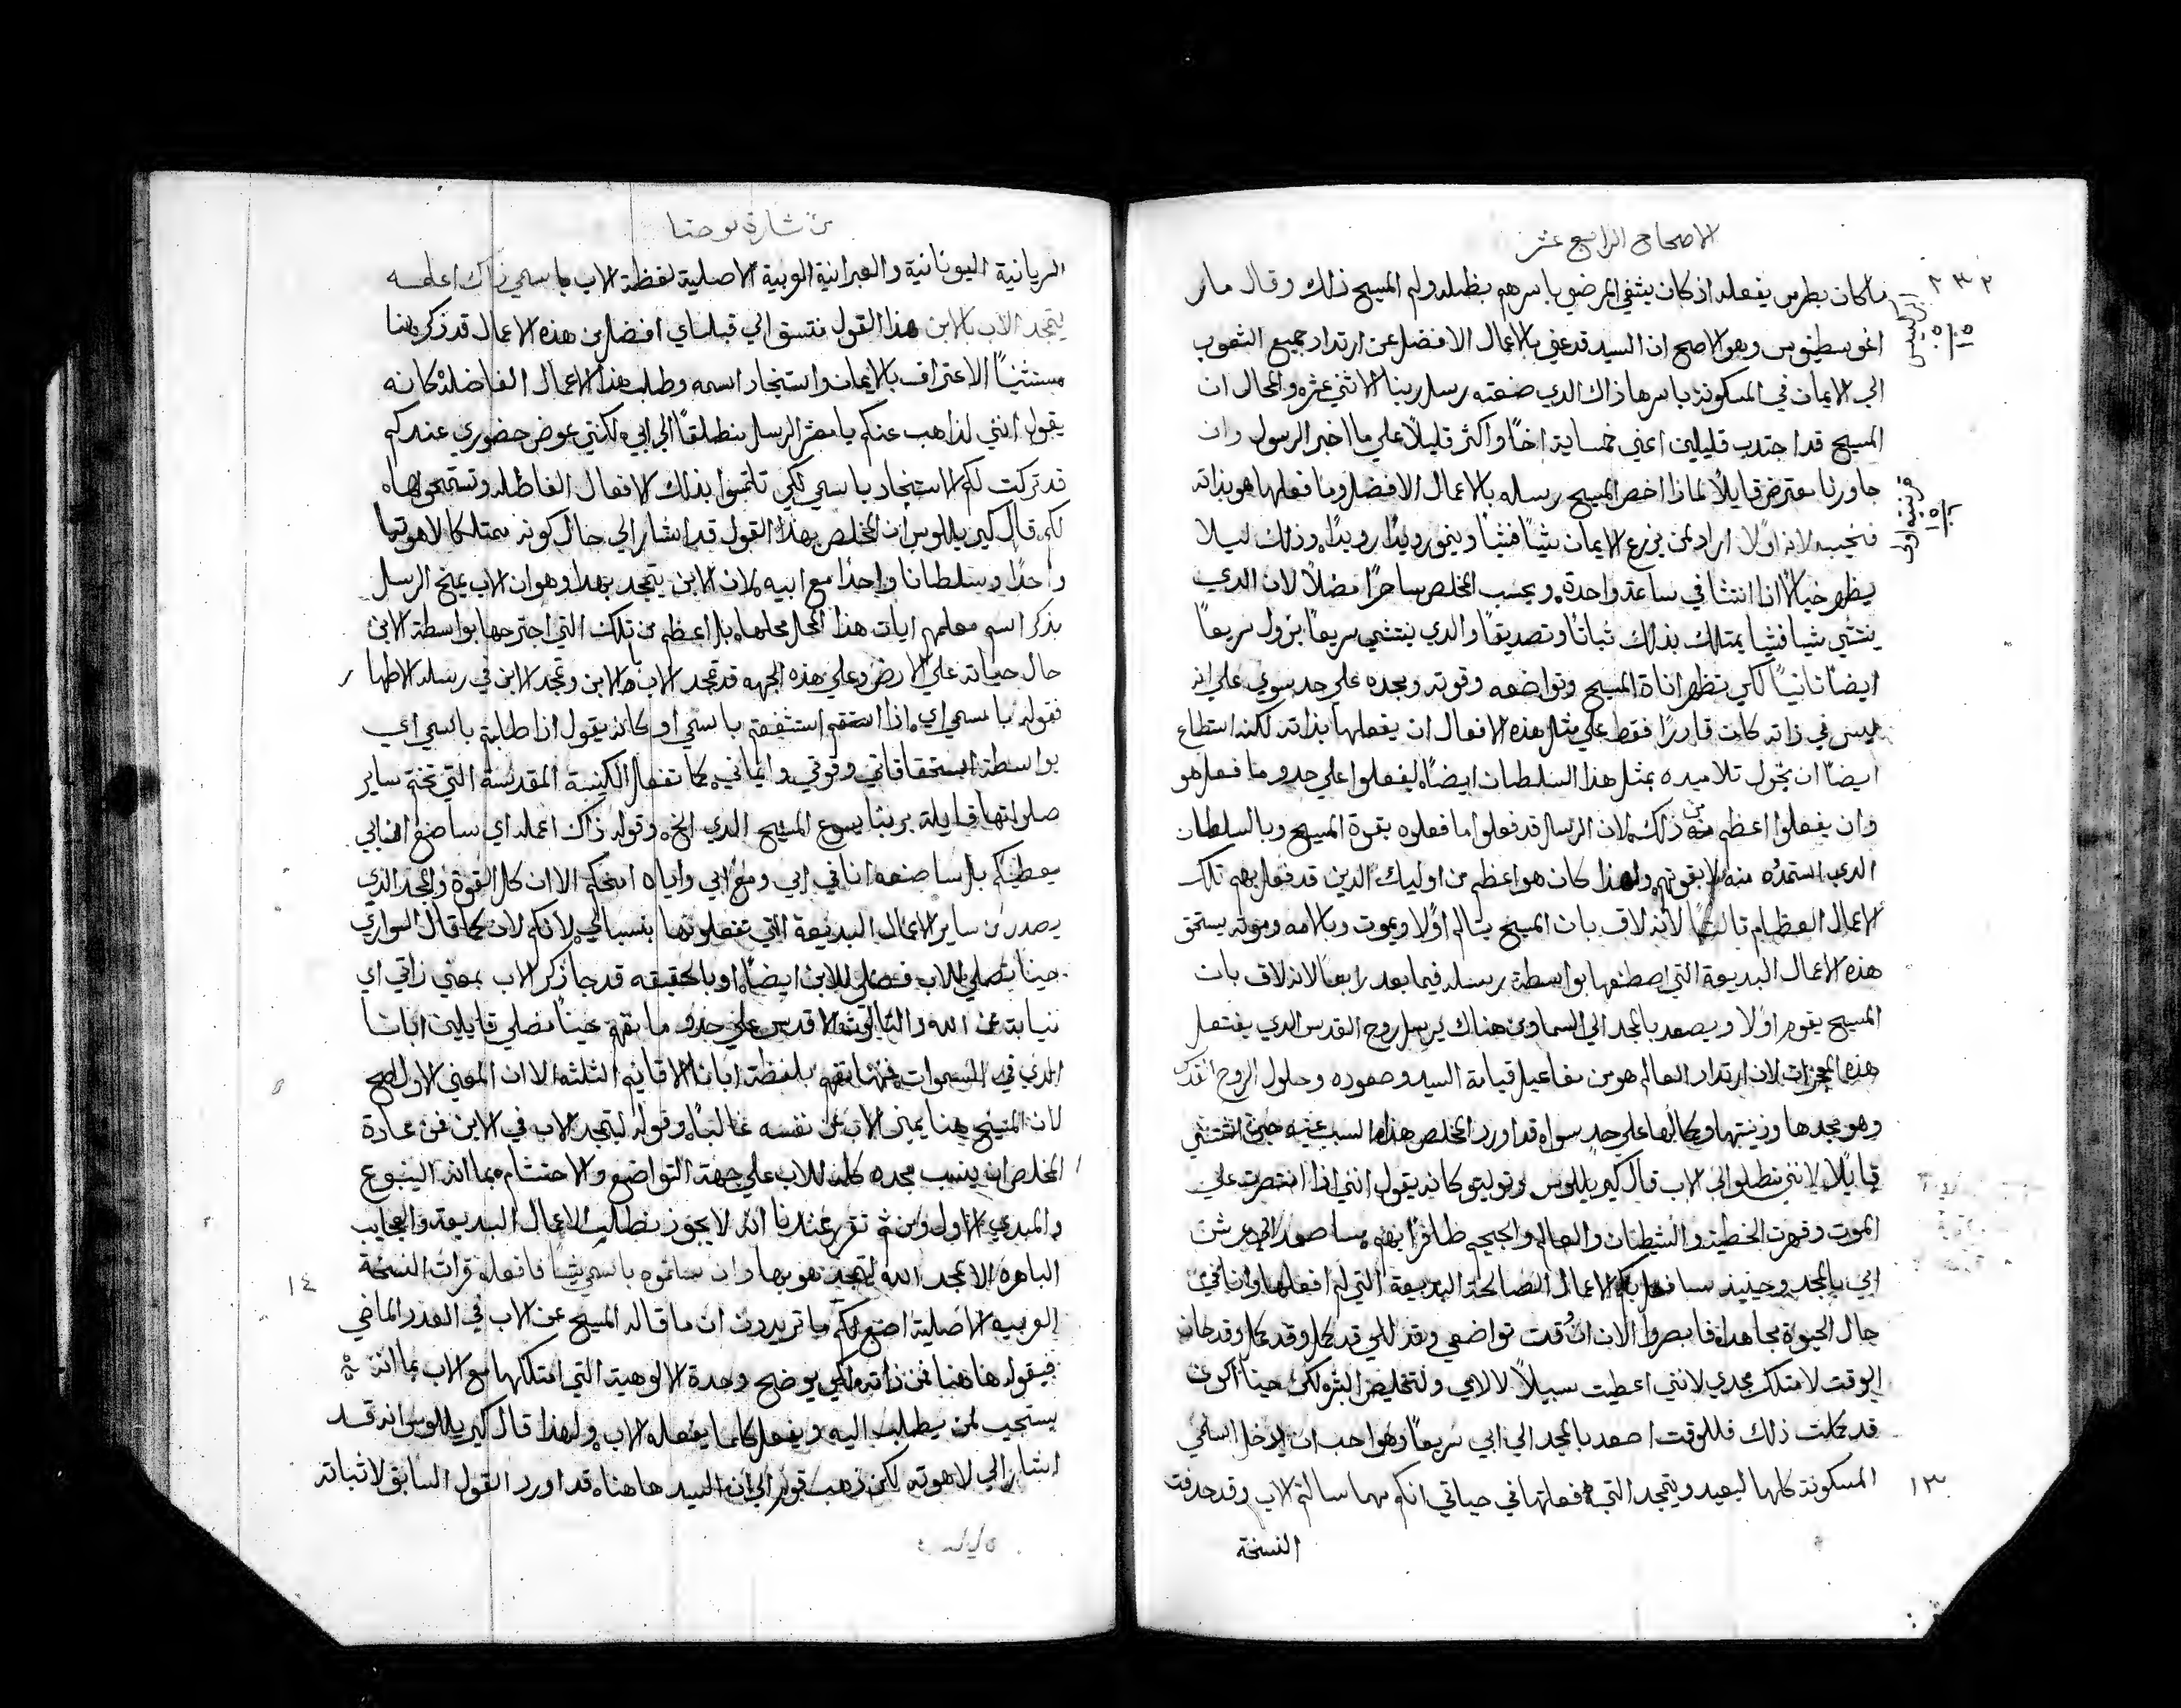 الاصحاح الرابع عشر
٢٣٢
ما كان بطرس يفعله اذ كان يشفي المرضي باسرهم بظله ولم المسيح ذلك وقال مار
اغوسطينوس وهو الاصح ان السيد قد عني بالاعمال الافضل عن ارتداد جميع الشعوب
الي الايمان في المسكونة باسرها ذاك الدي صنعته رسل ربنا الاثني عشر والحال ان
المسيح قد اجتدب قليلين اعني خمساية اخًا واكثر قليلاً علي ما اخبر الرسول وان
جاورنا معترض قايلاً لماذا اخص المسيح رسله بالاعمال الافضل وما فعلها هو بذاته
فنجيبه لانه اولاً اراد لمن يزرع الايمان شيًا فشيًا وينمو رويدًا رويدًا وذلك ليلا
يظهر خيالاً اذا انتشا في ساعة واحدة ويحسب المخلص ساحرًا مضلاً لان الدي
ينتشي شيا فشيا يمتلك بذلك ثباتًا وتصديقًا والدي ينتشي سريعًا يزول سريعًا
ايضًا ثانيًا لكي تظهر اناة المسيح وتواضعه وقوته ومجده علي حد سوي علي انه
ليس في ذاته كان قادرًا فقط علي مثل هذه الافعال ان يفعلها بذاته لكنه استطاع
ايضًا ان يخول تلاميده بمثل هذا السلطان ايضًا ليفعلوا علي حدو ما فعل هو
وان يفعلوا اعظم من ذلك لان الرسل قد فعلوا ما فعلوه بقوة المسيح وبالسلطان
الدي استمدُه منه لا بقوتهم ولهذا كان هو اعظم من اوليك الدين قد فعل بهم تلك
الاعمال العظام ثالثًا لانه لاق بان المسيح يتالم اولاً ويموت وبالامه وموته يستحق
هذه الاعمال البديعة التي اصطنعها بواسطة رسله فيما بعد رابعًا لانه لاق بان
المسيح يقوم اولا ويصعد بالمجد الي السما ومن هناك يرسل روح القدس الدي يفتعل
هذه المعجزات لان ارتداد العالم هو من مفاعيل قيامة السيد وصعوده وحلول الروح القدس
وهو مجدها وزينتها وكمالها علي حد سواه قد اورد المخلص هذا السبب عينه حين
قايلاً لانني منطلق الي الاب قال كيريللوس وتوليتو كانه يقول انني اذا انتصرت علي
الموت وقهرت الخطية والشيطان والعالم والجحيم ظافرًا بهم ساصعد الي عرش
ابي بالمجد وحينيد سافعل بكم الاعمال الصالحة البديعة التي لم افعلها وانا في
حال الحيوة مجاهدًا فابصروا الان
الوقت لامتلك مجدي لانني اعطيت سبيلاً لالامي ولتخليص البشر لكن حينا اكون
قد كملت ذلك فللوقت اصعد بالمجد الي ابي سريعًا وهو احب ان يدخل اسمي
١٣ المسكونة كلها ليعبد ويتمجد التي فعلتها في حياتي انكم مهما سالتم الاب وقد حدفت
النسخة
بشارة يوحنا
السريانية اليونانية والعبرانية العربية الاصلية لفظة الاب باسمي ذاك اعمله
ليتمجد الاب بالابن هذا القول متسق الي قبله اي افضل من هذه الاعمال قد ذكر هنا
مستثنيًا الاعتراف بالايمان واستنجاد اسمه وطلب هذا الاعمال الفاضلة كانه
يقول انني لذاهب عنكم يا معشر الرسل منطلقًا الي ابي لكنني عوض حضوري عندكم
قد تركت لكم الاستنجاد باسمي لكي تلتمسوا بذلك الافعال الفاضلة
لكم قال كيريللوس ان المخلص بهذا القول قد اشار الي حال كونه ممتلكا لاهوتيا
واحدًا وسلطانا واحدًا مع ابيه لان الابن يتمجد بهدا وهو ان الاب يمنح الرسل
بذكر اسم معلمهم ايات هذا المحل محلها بل اعظم من تلك التي اجترحها بواسطة الابن
حال حياته علي الارض وعلي هذه الجهه قد تمجد الاب بالابن وتمجد الابن في رسله الاطهار
فقوله باسمي اي اذا استشفعتم باسمي او كانه يقول اذا طلبتم باسمي اي
بواسطة استحقاقاتي وقوتي وايماني كما تفعل الكنيسة المقدسة التي تختم ساير
صلواتها قايلة بربنا يسوع المسيح الدي الخ وقوله ذاك اعمله اي ساضع ان ابي
يعطيكم بل ساصنعه انا في ابي ومع ابي واياه امنحكم الا ان كل القوة والمجد الذي
يصدر من ساير الاعمال البديعة التي تفعلونها
حينا تصلي للاب فصلي للابن ايضًا او بالحقيقه قد جا ذكر الاب بمعني ذاتي اي
نيابة عن الله والثالوث الاقدس علي حدو ما نفهم حينًا نصلي قايلين ابانا
الدي في السموات فهنا نفهم بلفظة ابانا الاقانيم الثلثه الا ان المعني الاول اصح
لان المسيح هنا يميز الاب عن نفسه غالبًا وقوله ليتمجد الاب في الابن فمن عادة
المخلص ان ينسب مجده كله للاب علي جهة التواضع والاحتشام بما انه الينبوع
والمبدي الاول ومن ثم تقرر عندنا انه لا يجوز نطلب الاعمال البديعة والعجايب
الباهرة الا لمجد الله ليتمجد هو بها وان سالتموه باسمي شيًا فافعله قرات النسخة
١٤
العربيه الاصلية اصنع لكم ما تريدون ان ما قاله المسيح عن الاب في العدد الماضي
فيقوله هاهنا عن ذاته لكي يوضح وحدة الالوهية التي امتلكها مع الاب بما انه
يستجيب لمن يطلب اليه ويفعل كلما يفعله الاب ولهذا قال كيريللوس انه قد
اشار الي لاهوته لكن ذهب قوم الي ان السيد هاهنا قد اورد القول السابق لاثباته